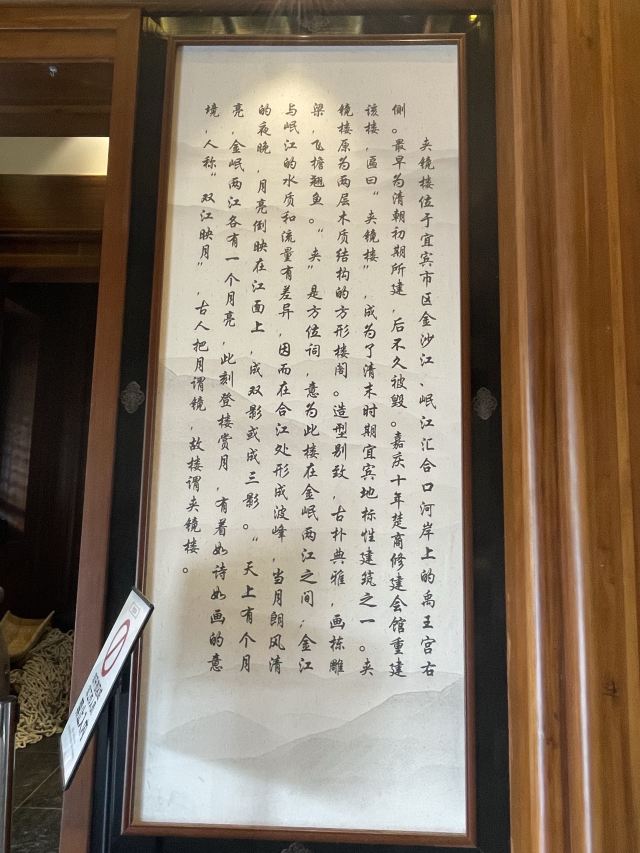 夹镜楼位于宜宾市区金沙江、岷江汇合口河岸上的禹王宫右
侧。最早为清朝初期所建，后不久被毁。嘉庆十年楚商修建会馆重建
该楼，匾曰“夹镜楼”，成为了清末时期宜宾地标性建筑之一。夹
镜楼原为两层木质结构的方形楼阁。造型别致，古朴典雅，画栋雕
梁，飞檐翘鱼。“夹”是方位词，意为此楼在金岷两江之间；金江
与岷江的水质和流量有差异，因而在合江处形成波峰，当月朗风清
的夜晚，月亮倒映在江面上，成双影或成三影。“天上有个月
亮，金岷两江各有一个月亮，此刻登楼赏月，有着如诗如画的意
境，人称“双江映月”，古人把月谓镜，故楼谓夹镜楼。